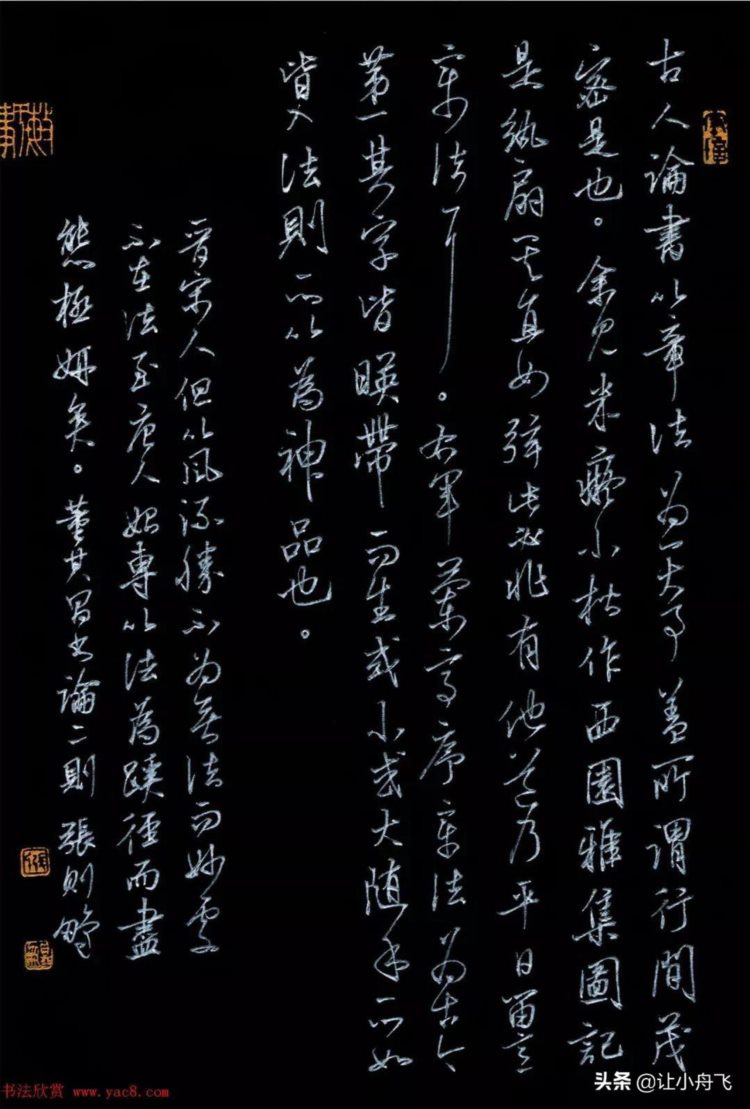 古人論書以章法為一大事蓋所謂行間茂
密是也。余見米癡小楷作西園雅集圖記
是紈扇其直如弦此必非有他道乃平日留意
章法耳。右軍蘭亭序章法為古今
第一其字皆暎帶而生或小或大隨手所如
皆入法則所以為神品也。
晉宋人但以風流勝不為無法而妙處
不在法至唐人始專以法為蹊徑而盡
態極妍矣。董其昌書論二則 張則
书法欣赏 www.yac8.com
头条 @让小舟飞